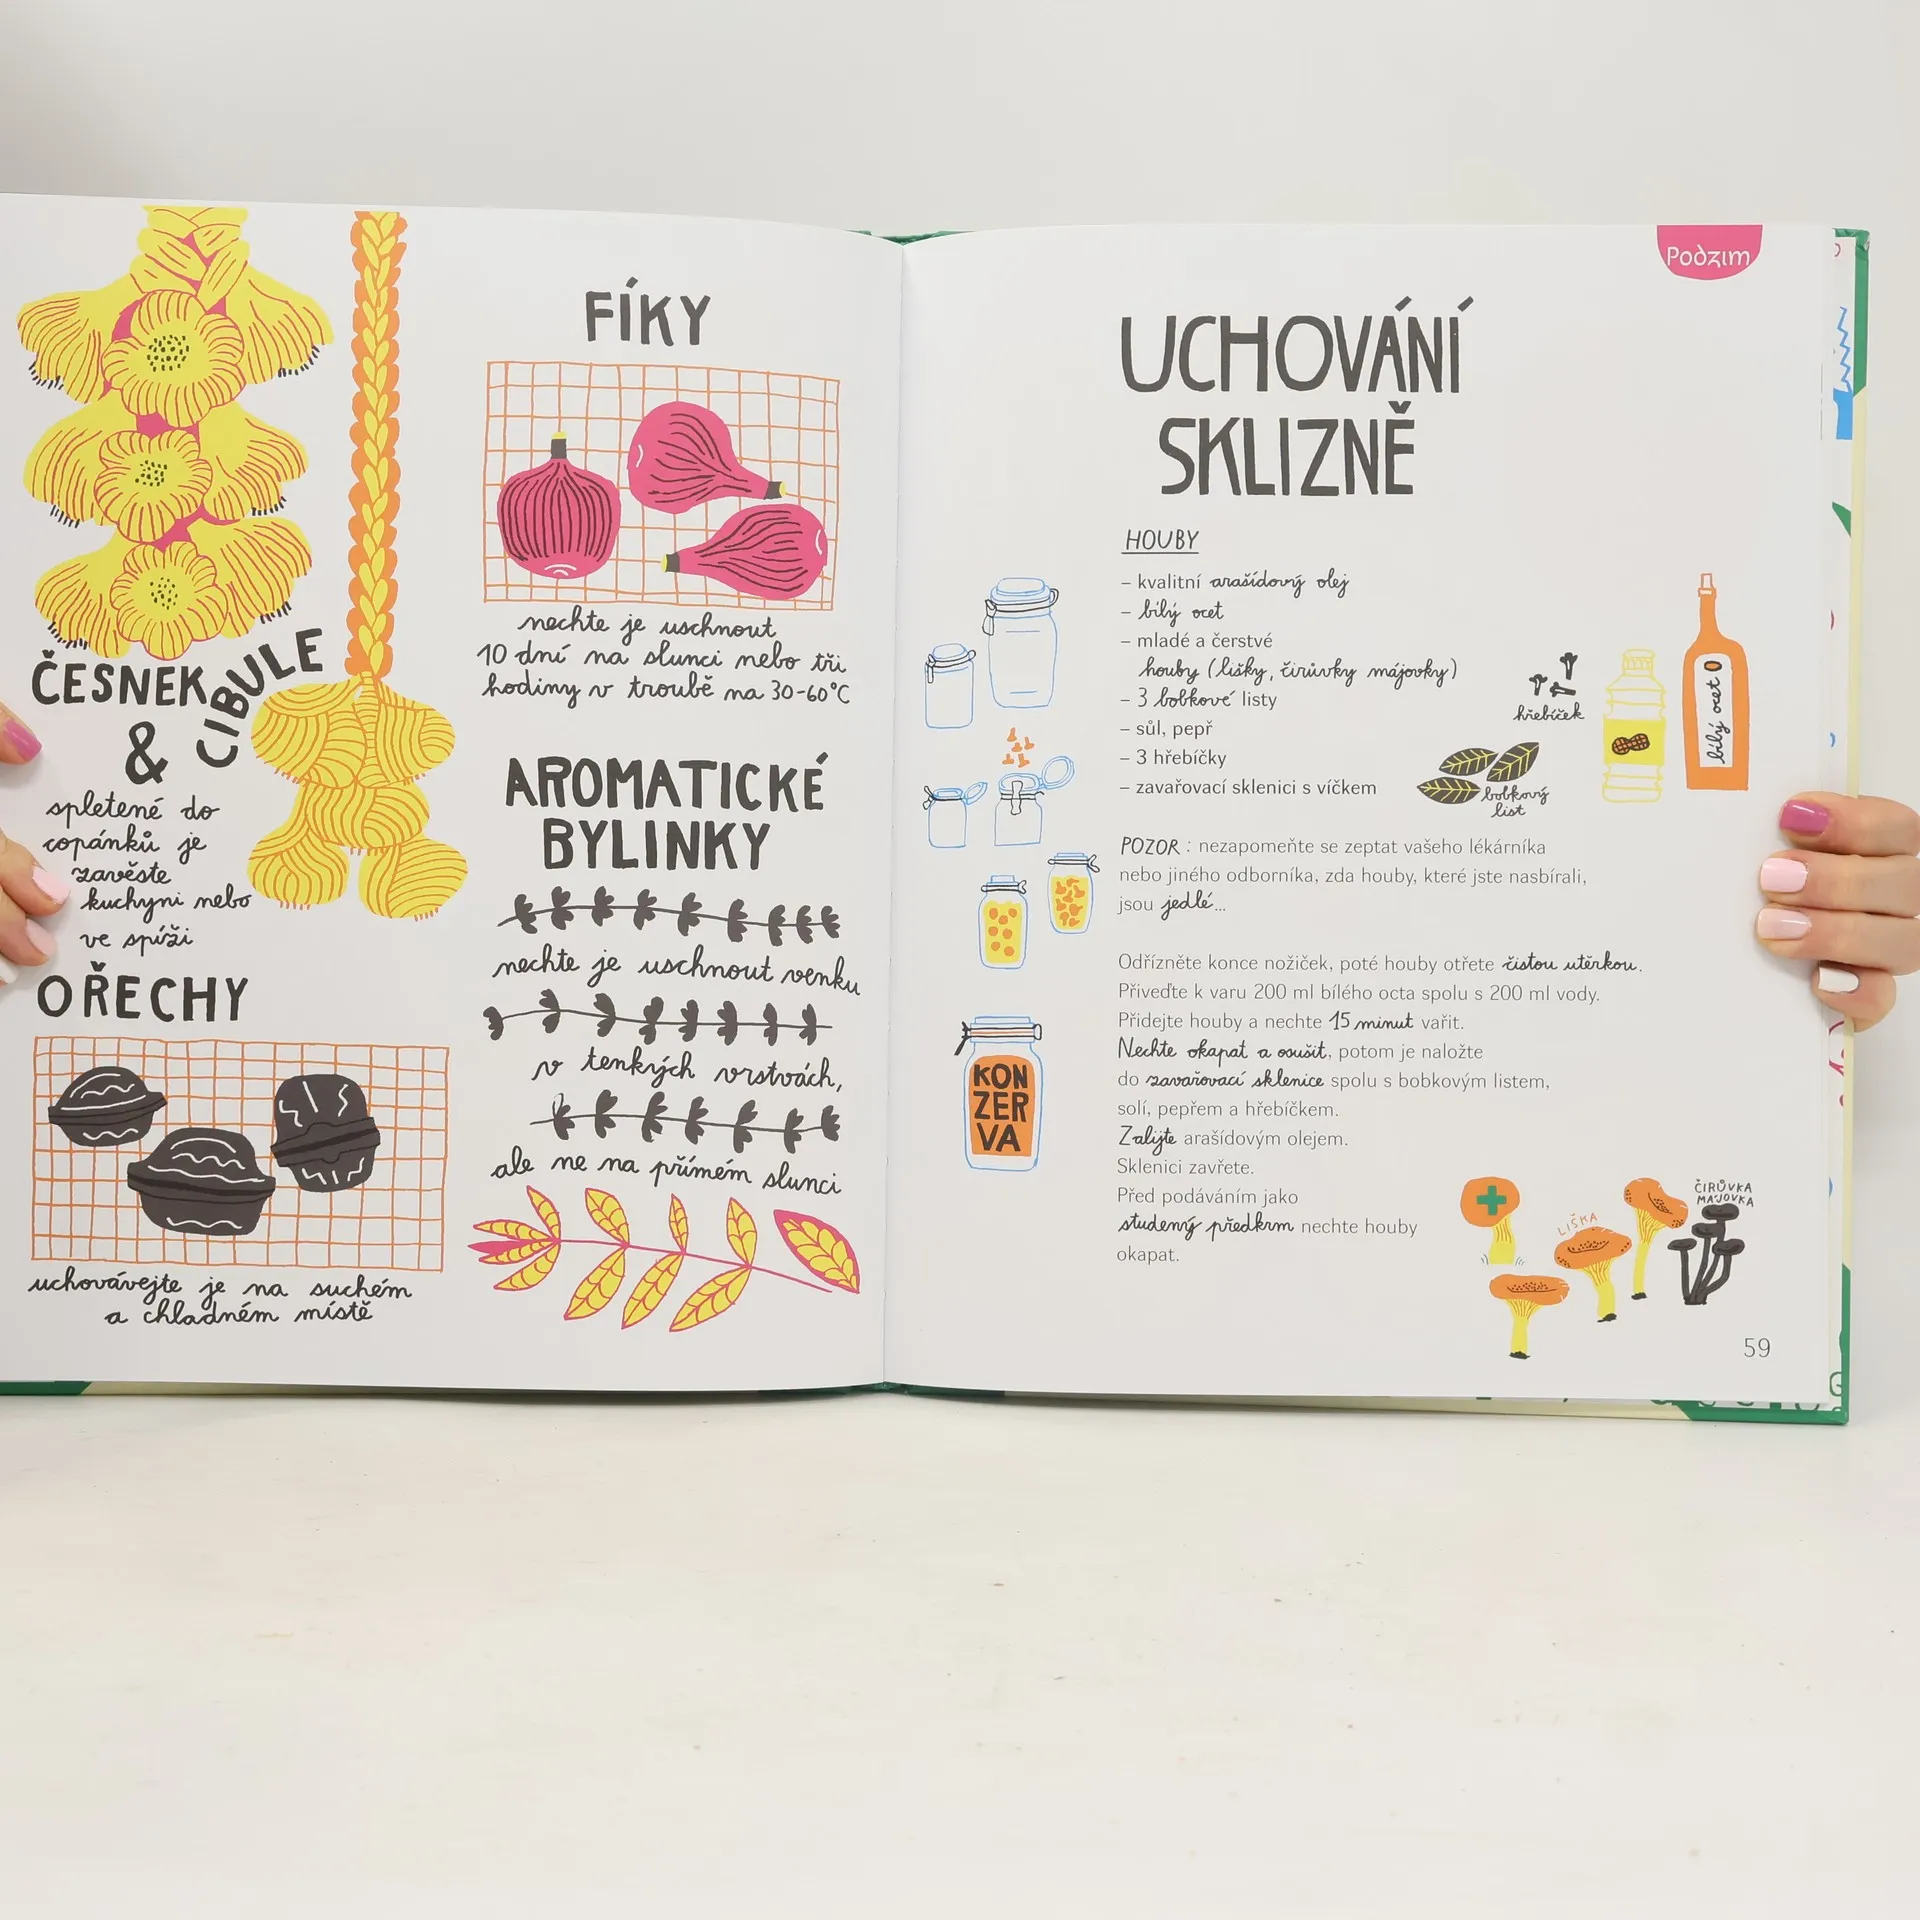 ČESNEK
&
CIBULE
spletené do
copánků je
zavěste
kuchyni nebo
ve spíži
OŘECHY
uchovávejte je na suchém
a chladném místě
FÍKY
nechte je uschnout
10 dní na slunci nebo tři
hodiny v troubě na 30-60°C
AROMATICKÉ
BYLINKY
nechte je uschnout venku
v tenkých vrstvách,
ale ne na přímém slunci
Podzim
UCHOVÁNÍ
SKLIZNĚ
HOUBY
– kvalitní arašídový olej
– bílý ocet
– mladé a čerstvé
houby (lišky, čirůvky májovky)
– 3 bobkové listy
– sůl, pepř
– 3 hřebíčky
– zavařovací sklenici s víčkem
hřebíček
bobkový
list
bílý ocet
POZOR : nezapomeňte se zeptat vašeho lékárníka
nebo jiného odborníka, zda houby, které jste nasbírali,
jsou jedlé...
Odřízněte konce nožiček, poté houby otřete čistou utěrkou.
Přiveďte k varu 200 ml bílého octa spolu s 200 ml vody.
Přidejte houby a nechte 15 minut vařit.
Nechte okapat a osušit, potom je naložte
do zavařovací sklenice spolu s bobkovým listem,
solí, pepřem a hřebíčkem.
Zalijte arašídovým olejem.
Sklenici zavřete.
Před podáváním jako
studený předkrm nechte houby
okapat.
KON
ZER
VA
LIŠKA
ČIRŮVKA
MÁJOVKA
59